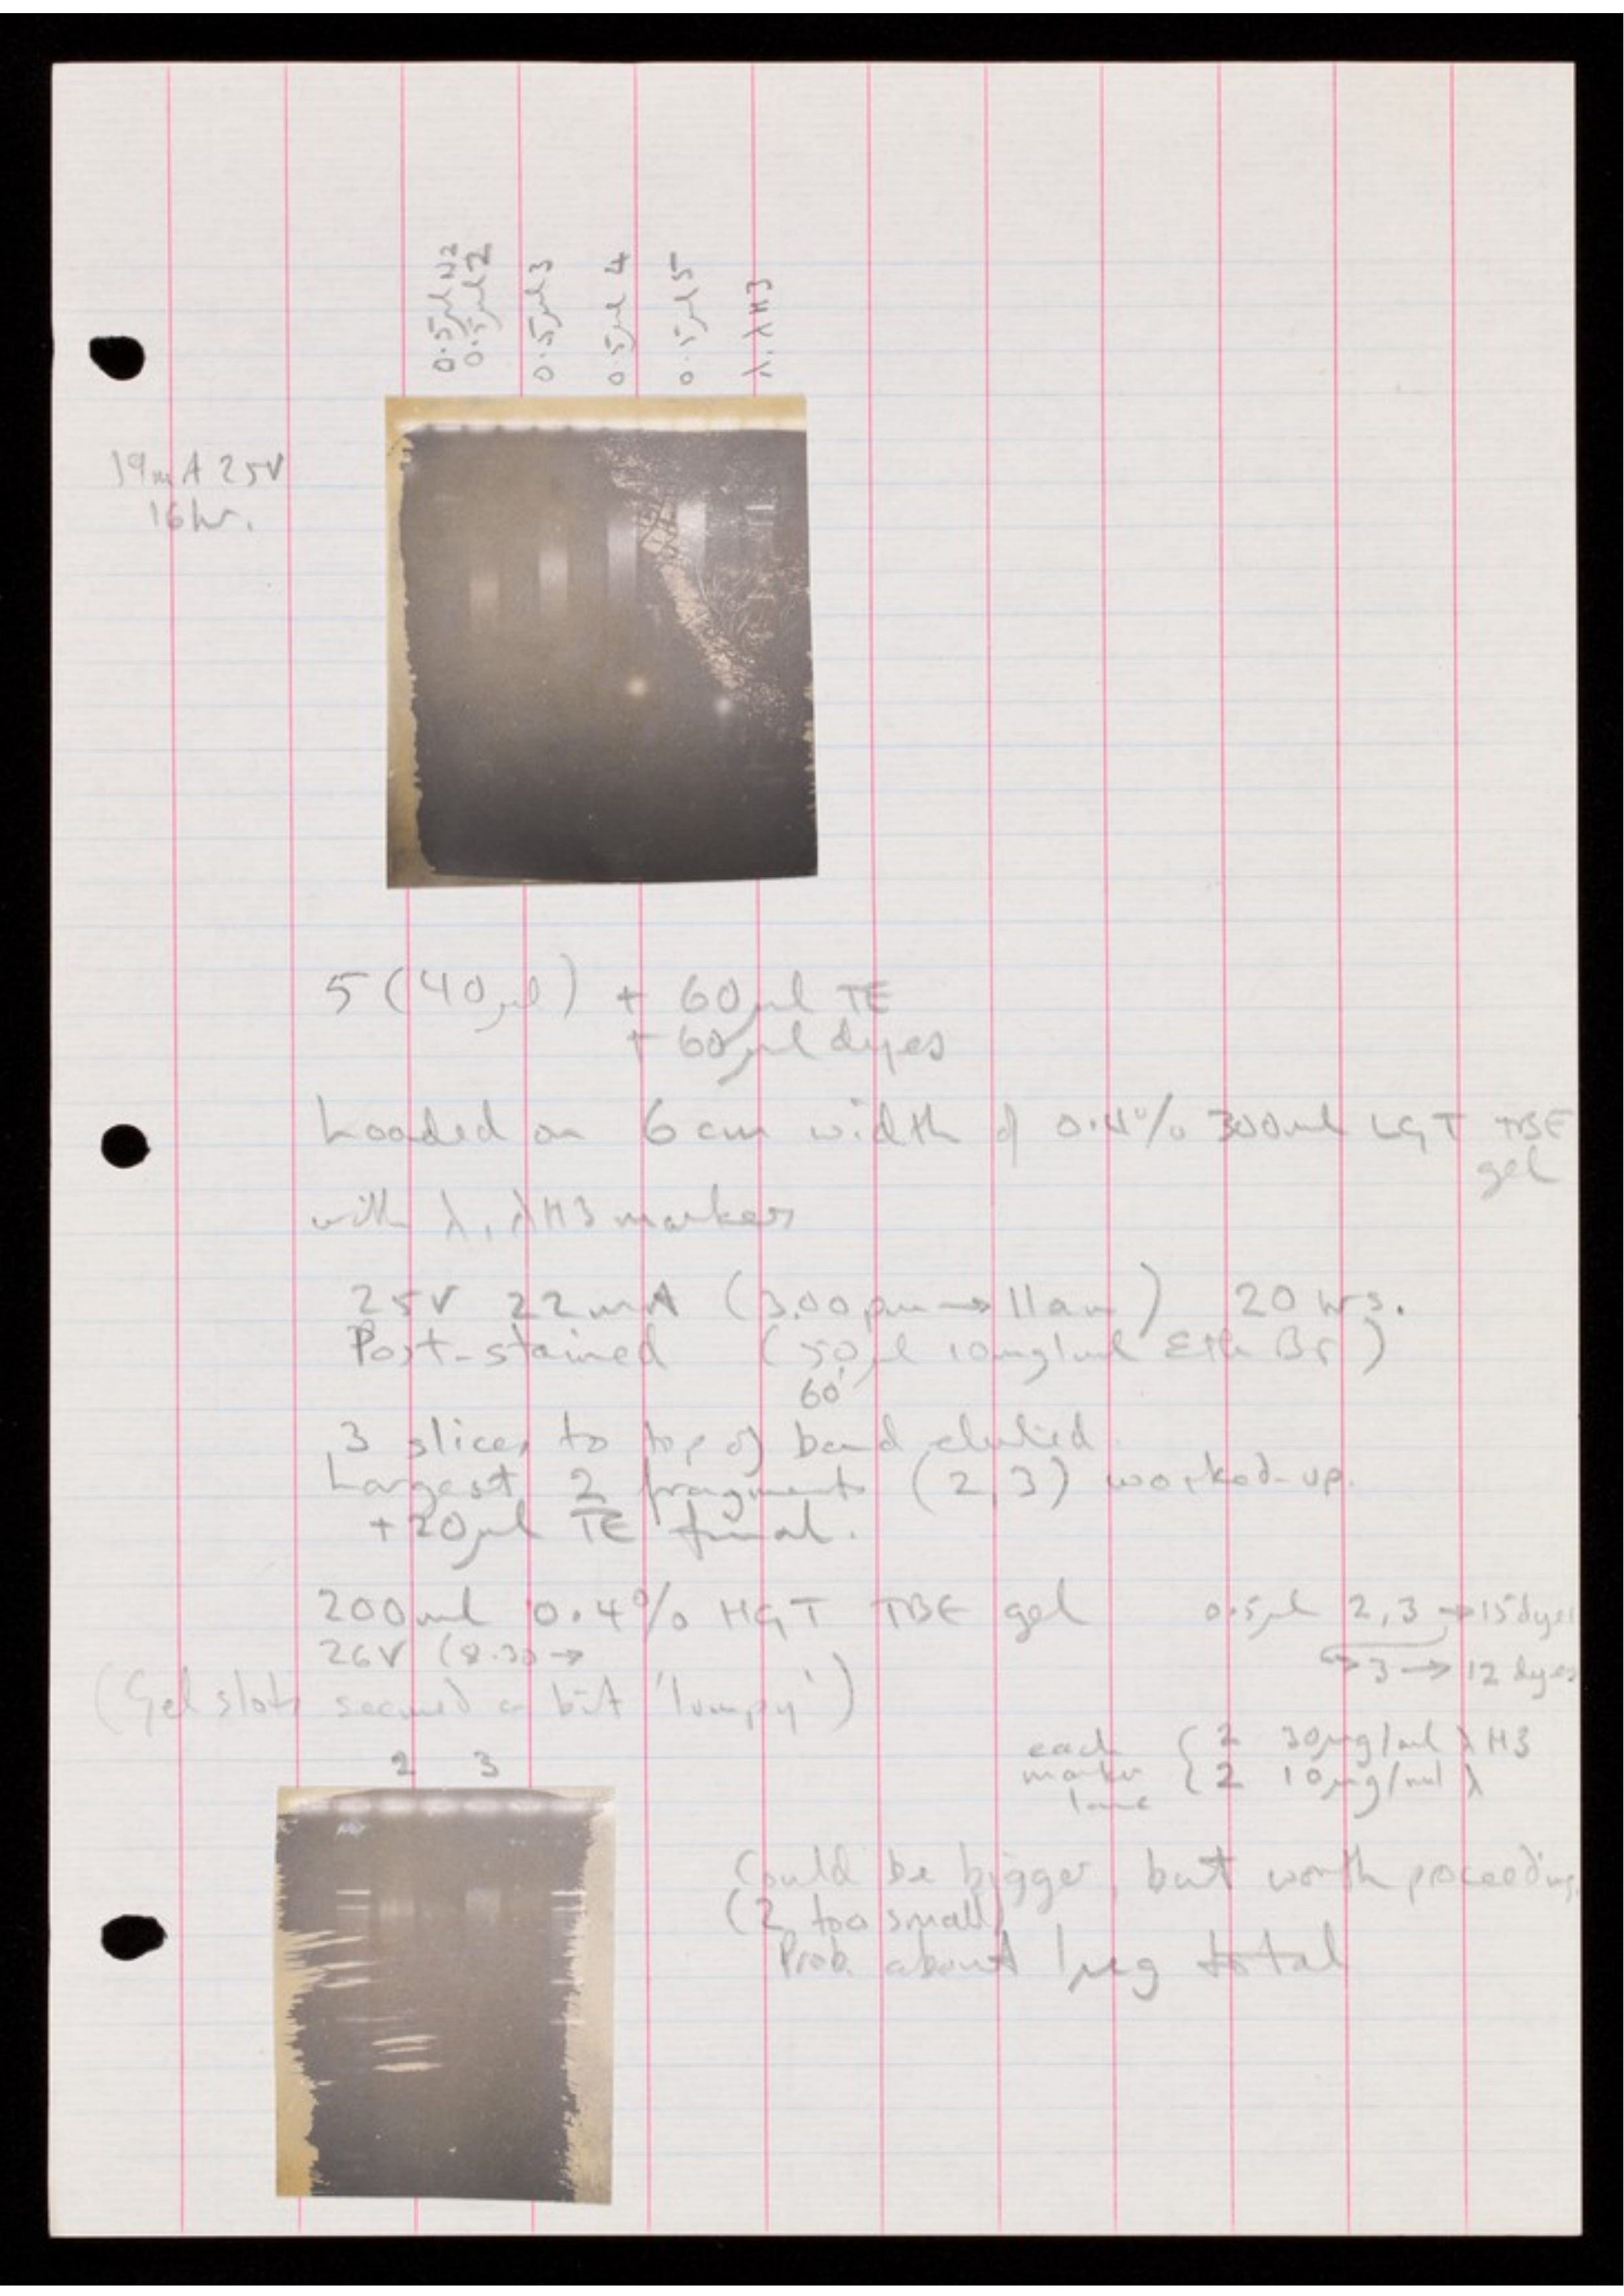 0.5µl N2
0.5µl 2
0.5µl 3
0.5µl 4
0.5µl 5
λ, λH3
19mA 25V
16hr.
5 (40µl) + 60µl TE
+ 60µl dyes
Loaded on 6cm width of 0.4% 300ml LGT TBE
gel
with λ, λH3 markers
25V 22mA (3.00pm → 11am) 20 hrs.
Post-stained (50µl 10mg/ml Eth Br)
60'
3 slices to top of band eluted
Largest 2 fragments (2,3) worked-up.
+20µl TE final.
200ml 0.4% HGT TBE gel 0.5µl 2,3 → 15 dyes
26V (8.30 → ↪ 3 → 12 dyes
(Gel slots seemed a bit 'lumpy')
each { 2 30µg/ml λH3
marker { 2 10µg/ml λ
lane
2 3
Could be bigger, but worth proceeding
(2 too small)
Prob. about 1µg total